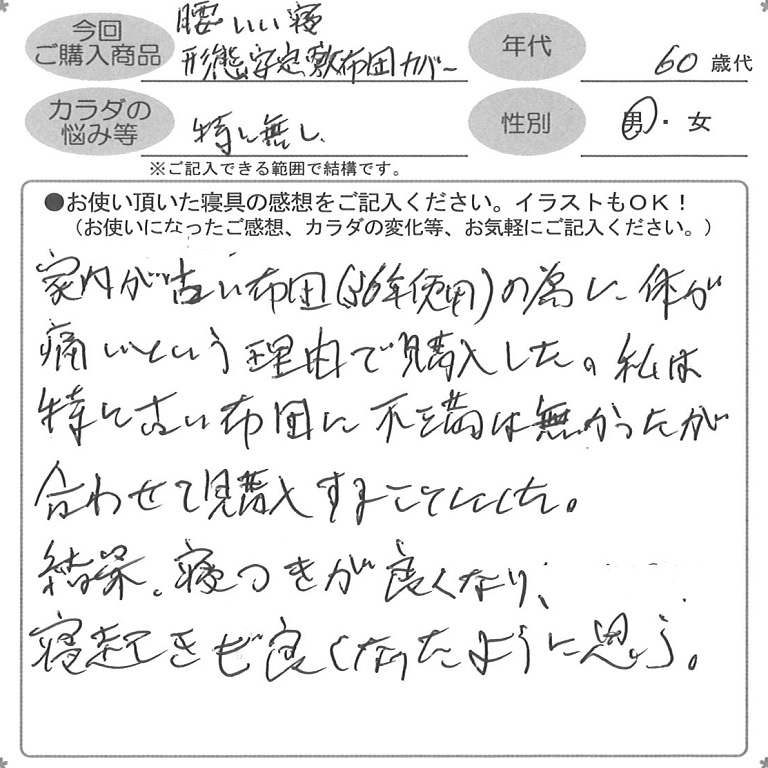 今回
ご購入商品
腰いい寝
形態安定敷布団カバー
年代
60歳代
カラダの
悩み等
特に無し
性別
男・女
※ご記入できる範囲で結構です。
●お使い頂いた寝具の感想をご記入ください。イラストもOK!
(お使いになったご感想、カラダの変化等、お気軽にご記入ください。)
家内が古い布団(36年使用)の為に体が
痛いという理由で購入した。私は
特に古い布団に不満は無かったが
合わせて購入することにした。
結果。寝つきが良くなり、
寝起きも良くなったように思う。